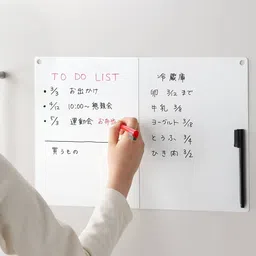 TO DO LIST
• 3/3 お出かけ
• 4/12 10:00〜 懇親会
• 5/3 運動会 お弁
買うもの
冷蔵庫
卵 3/12 まで
牛乳 3/8
ヨーグルト 3/18
とうふ 3/4
ひき肉 3/2